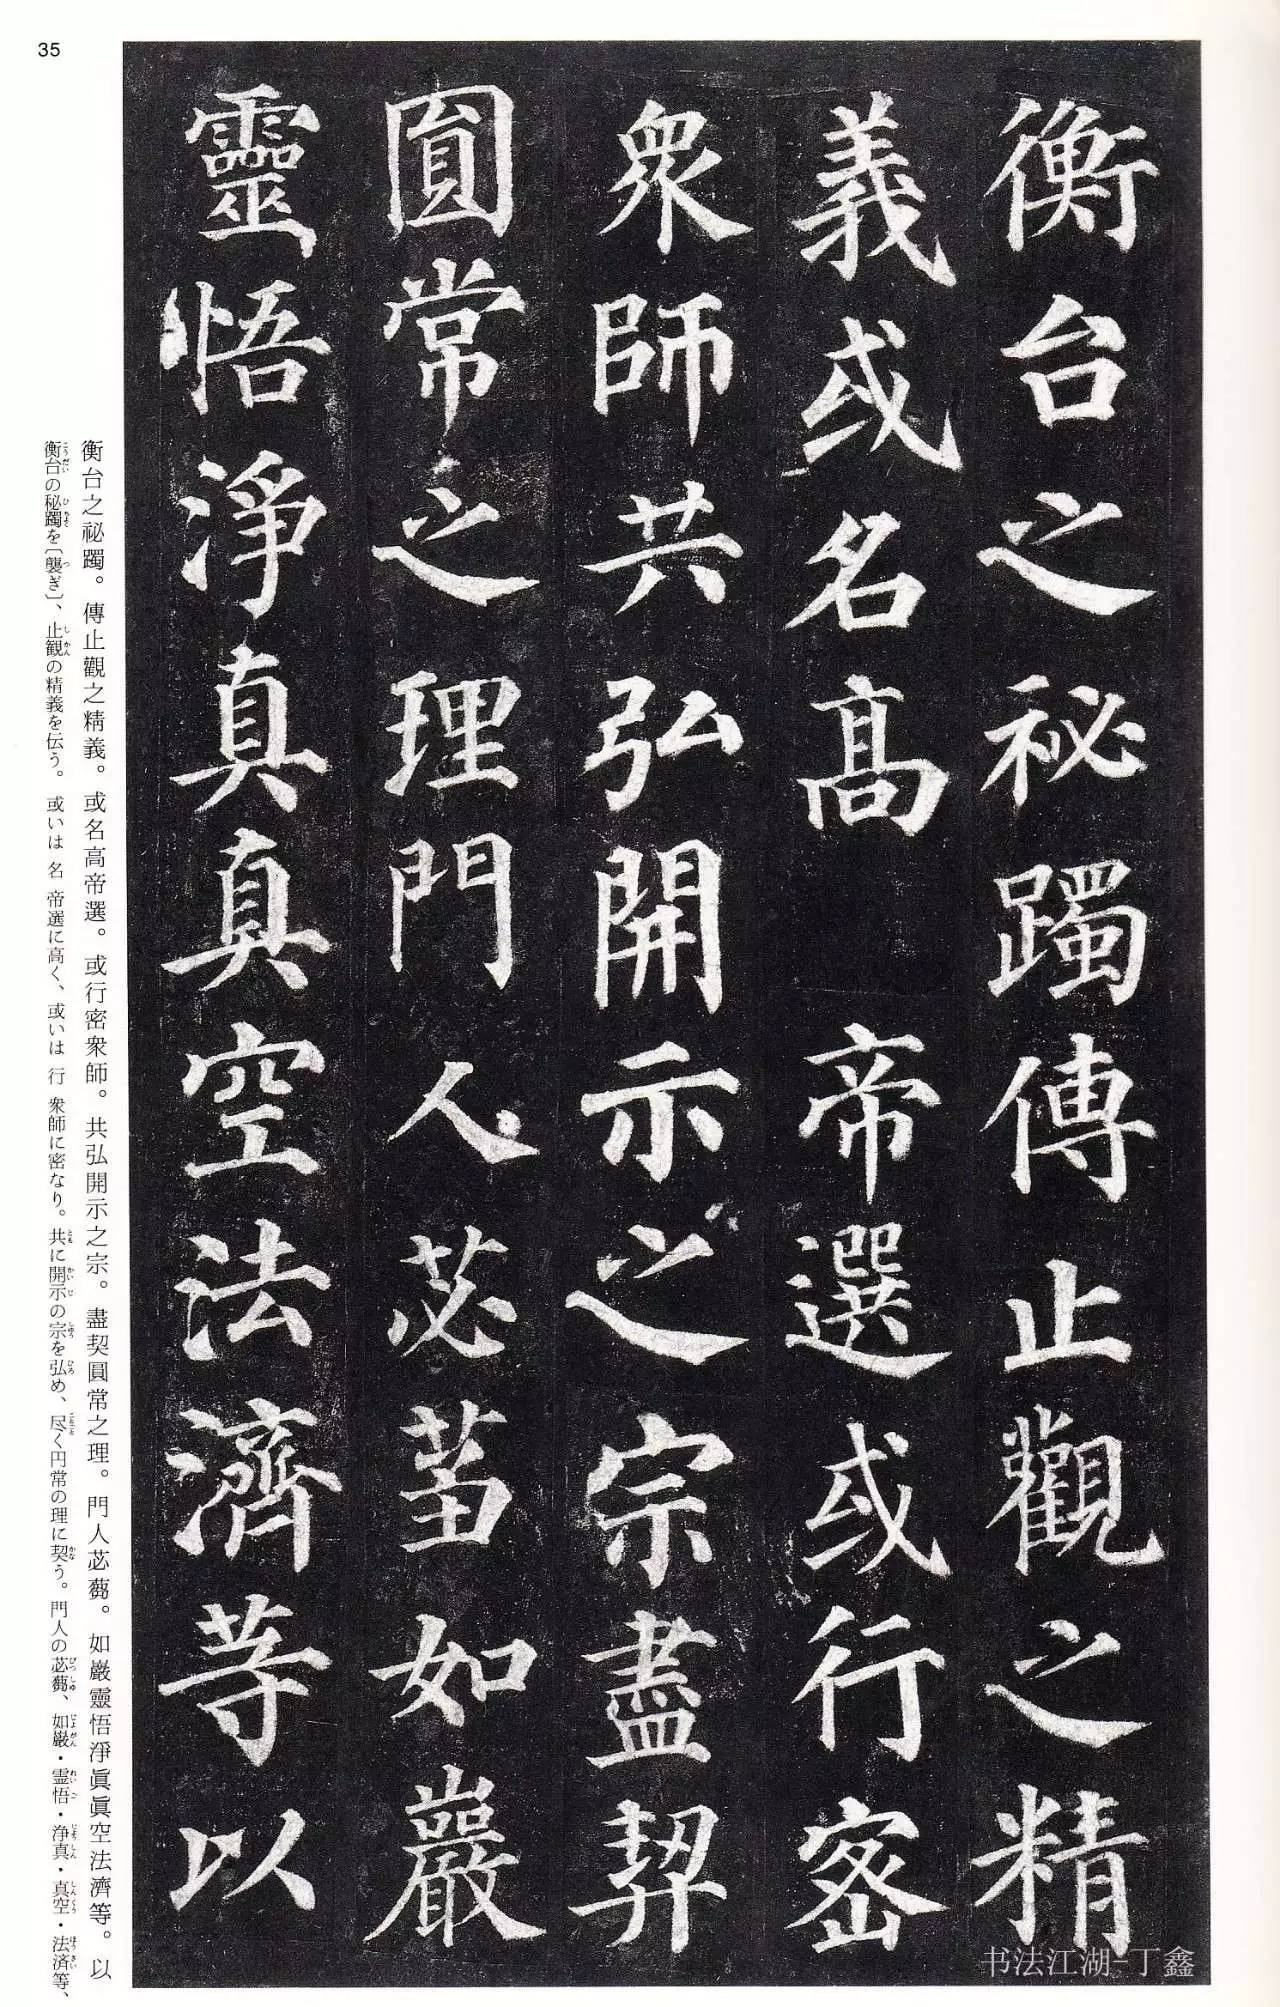 35
衡台之祕躅傳止觀之精
義或名高帝選或行密
衆師共弘開示之宗盡契
圓常之理門人苾蒭如巖
靈悟淨真真空法濟等以
衡台之祕躅。傳止觀之精義。或名高帝選。或行密衆師。共弘開示之宗。盡契圓常之理。門人苾蒭。如巖靈悟淨眞眞空法濟等。以
衡台の秘躅を〔襲ぎ〕、止観の精義を伝う。或いは 名 帝選に高く、或いは 行 衆師に密なり。共に開示の宗を弘め、尽く円常の理に契う。門人の苾蒭、如巌・霊悟・浄真・真空・法済等、
书法江湖-丁鑫